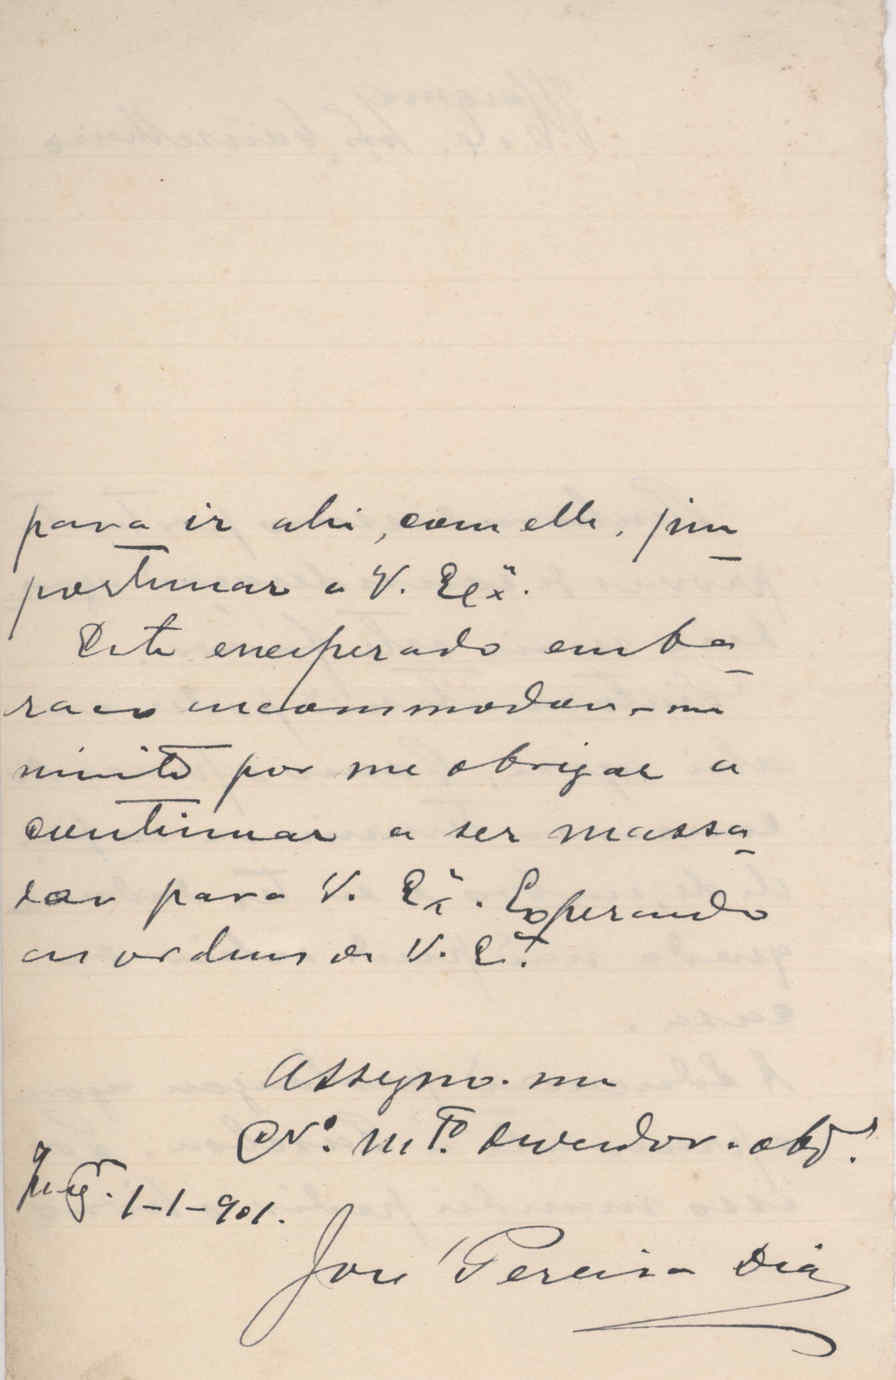 para ir ahi, com elle, im
portunar a V. Exª.
Este enesperado emba
raço incommodou-me
muito por me obrigar a
continuar a ser massa
dor para V. Exª. Esperando
as ordens de V. Eª.
Assigno-me
Cr.º m.to devedor. obg.º
1-1-901.
José Pereira Dias